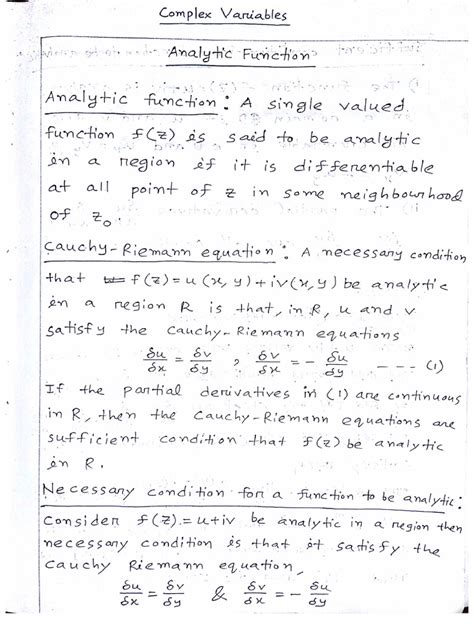 Complex Variables
Analytic Function
Analytic function : A single valued
function f(z) is said to be analytic
in a region if it is differentiable
at all point of z in some neighbourhood
of z₀.
Cauchy-Riemann equation : A necessary condition
that f(z) = u(x, y) + iv(x, y) be analytic
in a region R is that, in R, u and v
satisfy the Cauchy-Riemann equations
δu/δx = δv/δy , δv/δx = - δu/δy --- (1)
If the partial derivatives in (1) are continuous
in R, then the Cauchy-Riemann equations are
sufficient condition that f(z) be analytic
in R.
Necessary condition for a function to be analytic:
Consider f(z) = u+iv be analytic in a region then
necessary condition is that it satisfy the
Cauchy Riemann equation,
δu/δx = δv/δy & δv/δx = - δu/δy